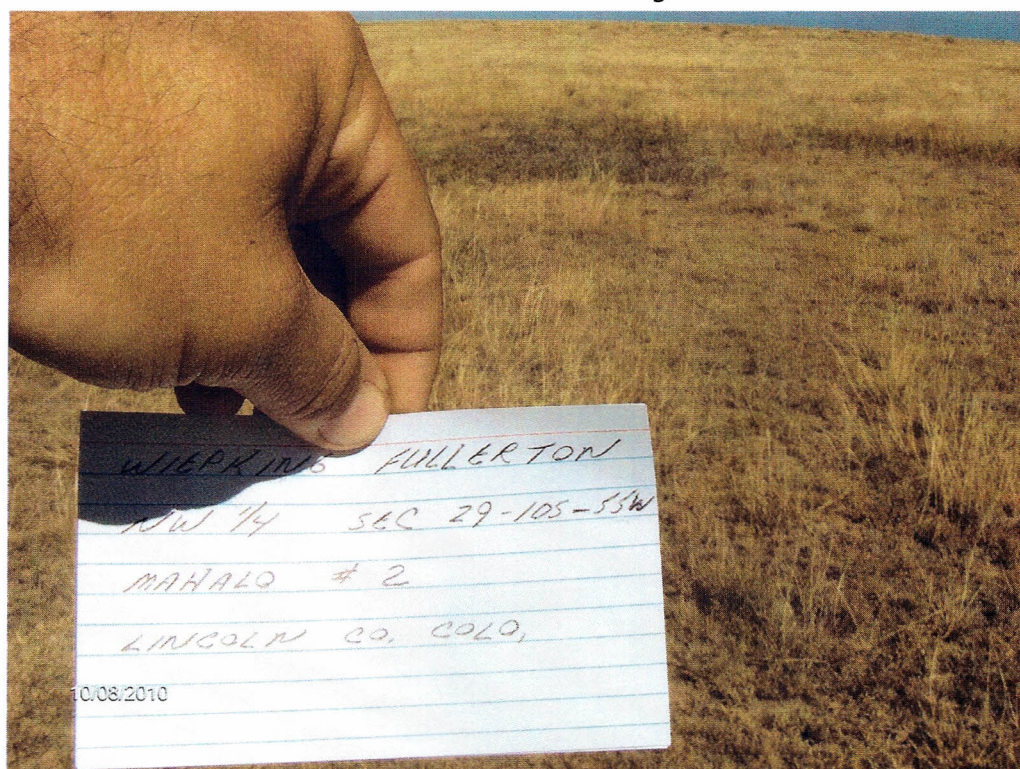 WIEPKING FULLERTON
NW 1/4 SEC 29-10S-55W
MAHALO # 2
LINCOLN CO. COLO,
10/08/2010